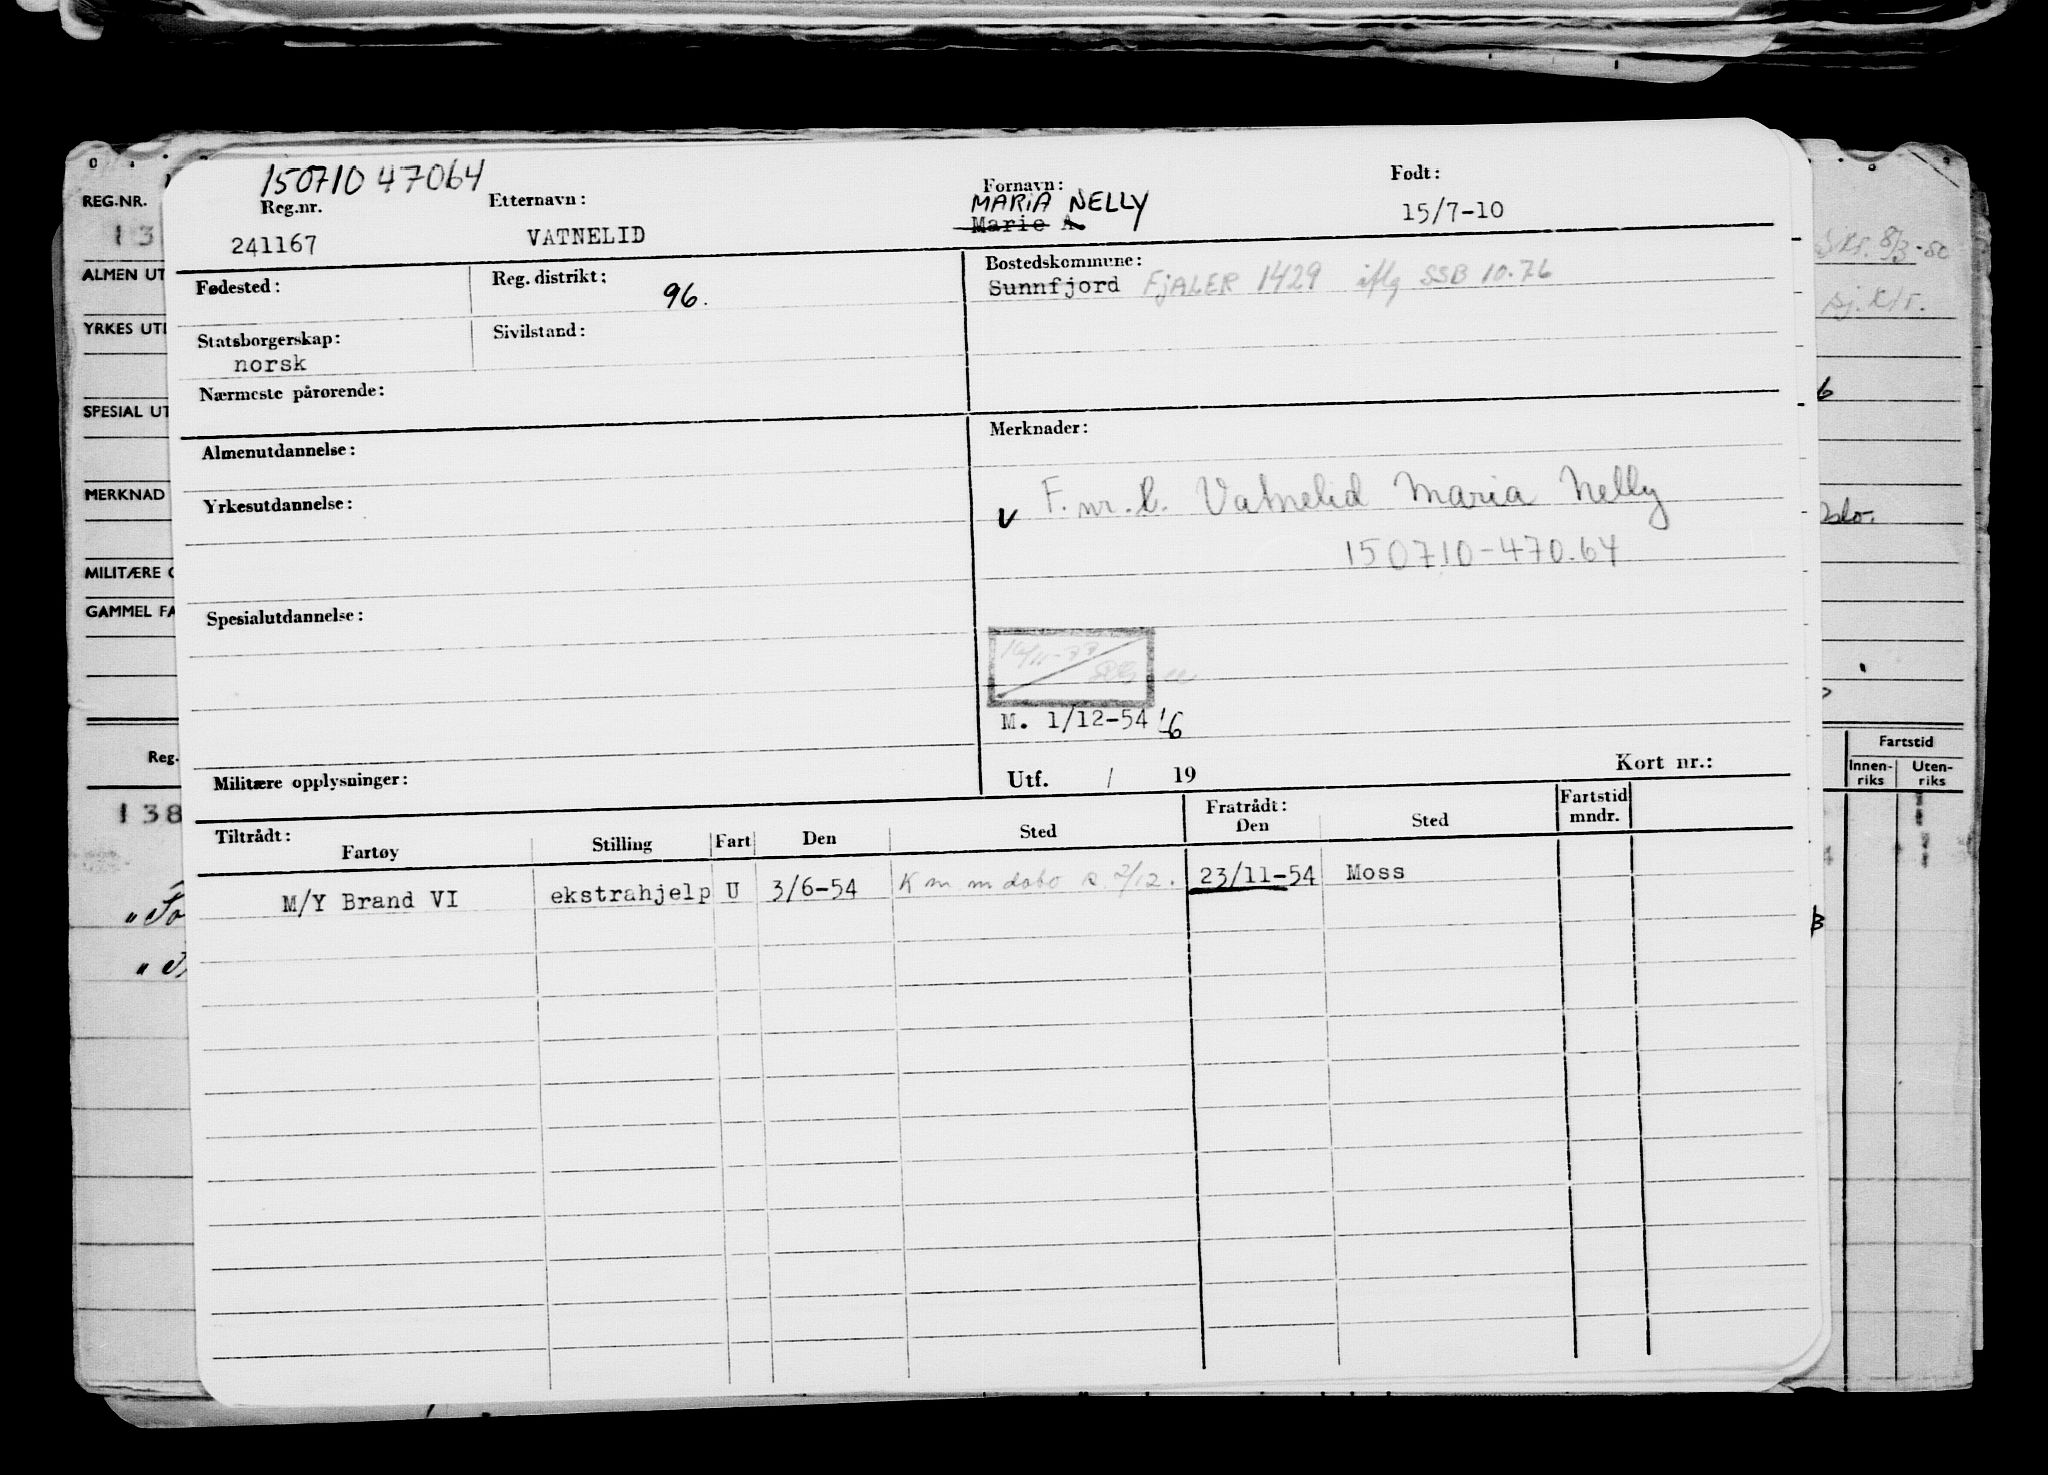 150710 47064
Reg.nr. Etternavn: Fornavn: Født:
MARIA NELLY
241167 VATNELID Marie A. 15/7-10
Fødested: Reg. distrikt: 96. Bostedskommune:
Sunnfjord FJALER 1429 iflg SSB 10.76
Statsborgerskap: Sivilstand:
norsk
Nærmeste pårørende:
Almenutdannelse: Merknader:
Yrkesutdannelse:
v F. nr. Vatnelid Maria Nelly
150710-470.64
Spesialutdannelse:
M. 1/12-54
Militære opplysninger: Utf. / 19 Kort nr.:
Tiltrådt: Fratrådt: Fartstid mndr.
Fartøy Stilling Fart Den Sted Den Sted
M/Y Brand VI ekstrahjelp U 3/6-54 23/11-54 Moss
REG.NR.
13
ALMEN UT
YRKES UTD
SPESIAL UT
MERKNAD
MILITÆRE O
GAMMEL FA
Reg.
138
8/3-80
Oslo.
Fartstid
Innen-riks Uten-riks